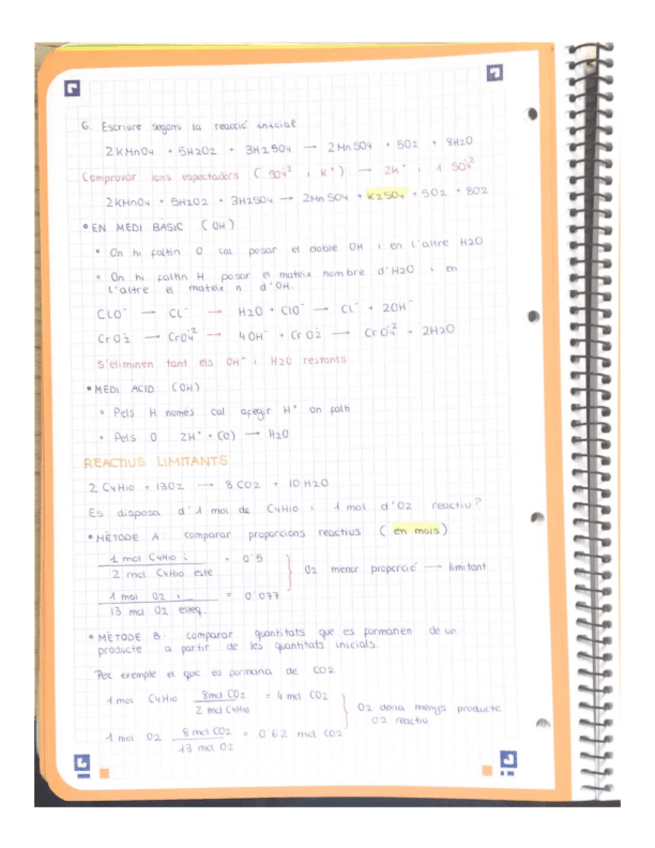 6. Escriure segons la reacció inicial
2KMnO4 + 5H2O2 + 3H2SO4 → 2MnSO4 + 5O2 + 8H2O
Comprovar ions espectadors ( SO4⁻² i K⁺ ) → 2K⁺ i 1 SO4⁻²
2KMnO4 + 5H2O2 + 3H2SO4 → 2MnSO4 + K2SO4 + 5O2 + 8O2
• EN MEDI BÀSIC ( OH )
• On hi faltin O cal posar el doble OH i en l'altre H2O
• On hi faltin H posar el mateix nombre d'H2O i en
l'altre el mateix n d'OH.
ClO⁻ → Cl⁻ → H2O + ClO⁻ → Cl⁻ + 2OH⁻
CrO2⁻ → CrO4⁻² → 4OH⁻ + CrO2⁻ → CrO4⁻² + 2H2O
S'eliminen tant els OH⁻ i H2O restants
• MEDI ACID (OH)
• Pels H només cal afegir H⁺ on falti
• Pels O 2H⁺ + (O) → H2O
REACTIUS LIMITANTS
2 C4H10 + 13O2 → 8 CO2 + 10 H2O
Es disposa d'1 mol de C4H10 i 1 mol d'O2 reactiu?
• MÈTODE A: comparar proporcions reactius ( en mols )
1 mol C4H10 i / 2 mol C4H10 este = 0'5
O2 menor proporció → limitant
1 mol O2 i / 13 mol O2 esteq = 0'077
• MÈTODE B: comparar quantitats que es formarien de un
producte a partir de les quantitats inicials.
Per exemple el que es formaria de CO2
1 mol C4H10 8mol CO2 / 2 mol C4H10 = 4 mol CO2
O2 dona menys producte
O2 reactiu
1 mol O2 8 mol CO2 / 13 mol O2 = 0'62 mol CO2